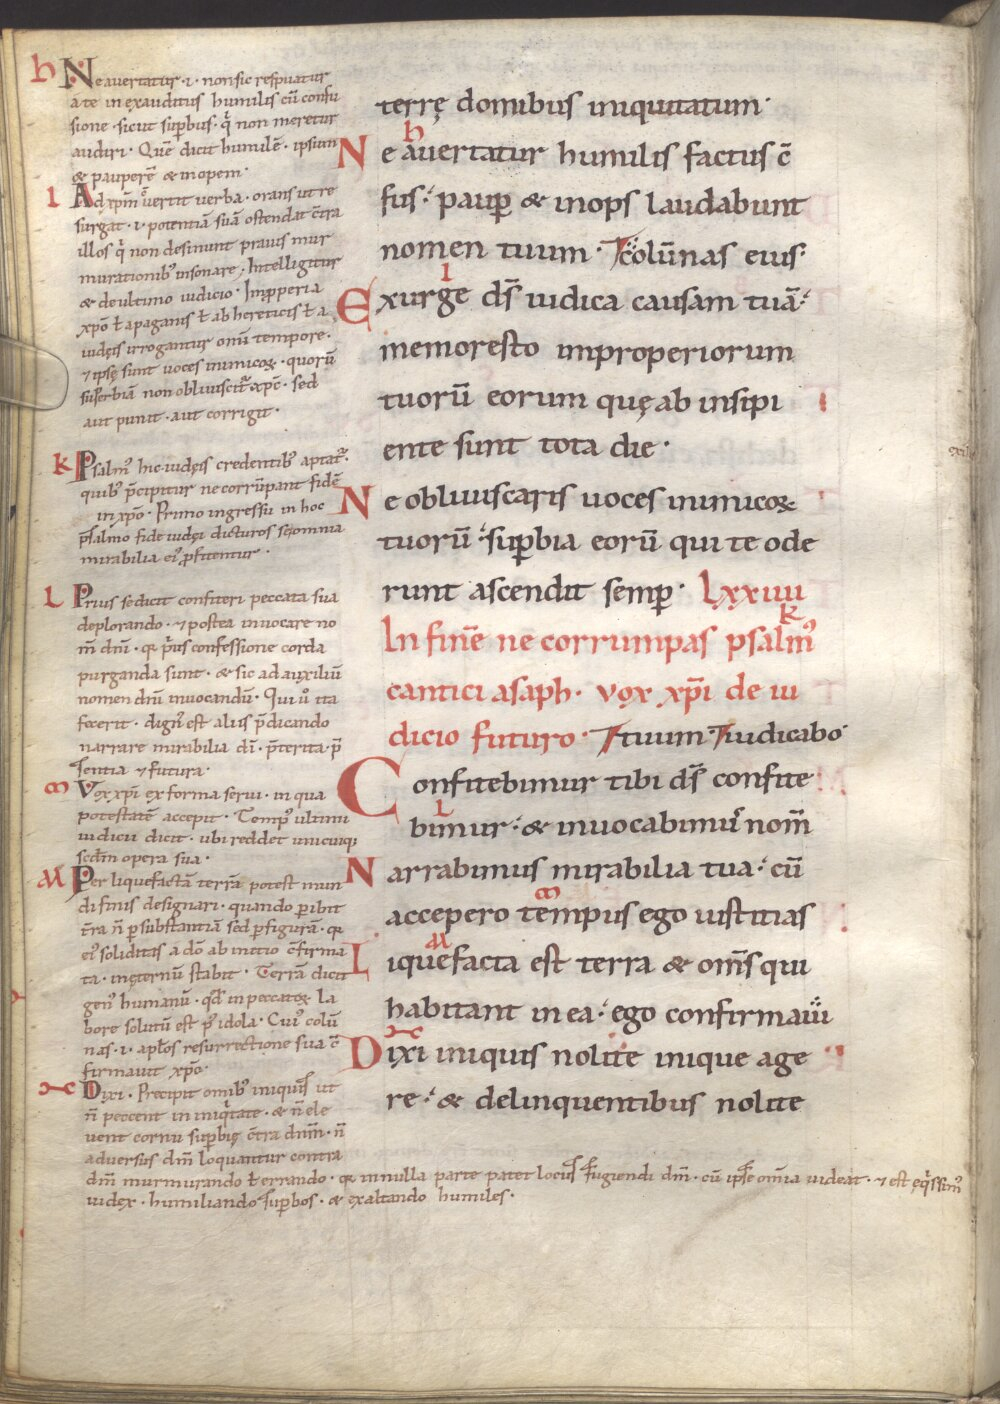 h Ne avertatur · i · non sic respuatur
a te inexauditus humilis cū confu
sione · sicut supbus · q̇ non meretur
audiri · Quē dicit humilē · ipsum
& pauperē & inopem ·
I Ad xp̄m v̊ertit uerba · orans ut re
surgat · i · potentiā suā ostendat c̄tra
illos q̇ non desinunt prauis mur
murationib; insonare · Intelligitur
& de ultimo iudicio · Impperia
xp̄o ł a paganis ł ab hereticis ł a
iudęis irrogantur omī tempore ·
⁊ ipsę sunt uoces inimicoꝝ · quorū
suꝑerbiā non obliuiscit᷑ xp̄c · sed
aut punit · aut corrigit ·
K Psalm᷒ hic iudęis credentib; aptat᷑ ·
quib; p̄cipitur ne corrūpant fidē
in xp̄o · Primo ingressu in hoc
psalmo fide iudęi dicturos sę omnia
mirabilia ei᷒ ꝓfitentur ·
L Prius se dicit confiteri peccata sua
deplorando · ⁊ postea inuocare no
m̄ dn̄i · q̨ ṗus confessione corda
purganda sunt · & sic ad auxiliū
nomen dn̄i inuocandū · Qui ů ita
fecerit · dign᷒ est aliis p̄dicando
narrare mirabilia dī · p̄terita · p̄
sentia ⁊ futura ·
m Vox xp̄i ex forma serui · in qua
potestatē accepit · Temp᷒ ultimi
iudicii dicit · ubi reddet unicuiq;
scdm̄ opera sua ·
M Per liquefactā terrā potest mun
di finis designari · quando ꝑibit
t̄ra n̄ ꝑ substantiā sed ꝑ figurā · q̨
ei᷒ soliditas a dō ab initio c̄firma
ta · inęternū stabit · Terrā dicit
gen᷒ humanū · qd̄ in peccatoꝝ la
bore solutū est ꝑ idola · Cui᷒ colū
nas · i · apłos resurrectione sua c̄
firmauit xp̄c ·
Dixi · Precipit omib; iniquis ut
n̄ peccent in iniq̇tate · & n̄ ele
uent cornu supbię c̄tra dn̄m · n̄
aduersus dm̄ loquantur contra
dm̄ murmurando ł errando · q̨ in nulla parte patet locus fugiendi dm̄ · cū ipse om̄ia uideat · ⁊ est ęq̇ssim᷒
iudex · humiliando supbos · & exaltando humiles ·
terrę domibus iniquitatum ·
h
Ne auertatur humilis factus c̄
fus : paup & inops laudabunt
nomen tuum · colūnas eius ·
I
Exurge ds̄ iudica causam tuā :
memor esto improperiorum
tuorū eorum quę ab insipi
ente sunt tota die ·
Ne obliuiscaris uoces inimicoꝝ
tuorū : supbia eorū qui te ode
runt ascendit semp · Lxxiiii
k
In finē ne corrumpas psalm᷒
cantici asaph · vox xp̄i de iu
dicio futuro · tuum iudicabo
Confitebimur tibi ds̄ confite
L
bimur : & inuocabimus nom̄
Narrabimus mirabilia tua : cū
m
accepero tempus ego iustitias
M
Liquefacta est terra & om̄s qui
habitant in ea : ego confirmaui
Dixi iniquis nolite inique age
re : & delinquentibus nolite